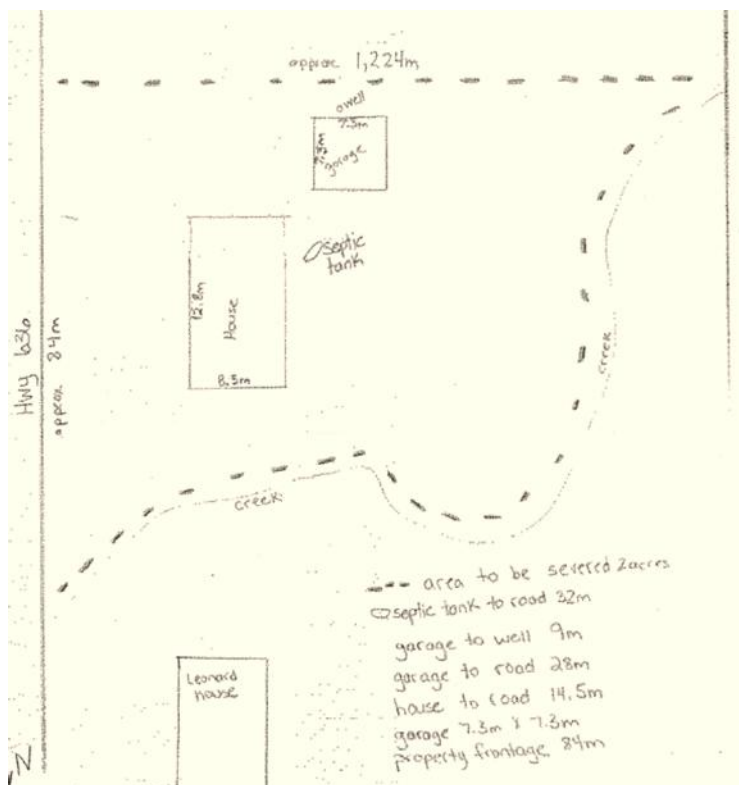 approx 1,224m
owell
7.3m
7.3m
garage
septic
tank
12.8m
House
8.5m
HWY 636
approx 84m
creek
creek
area to be severed 2acres
septic tank to road 32m
garage to well 9m
garage to road 28m
house to road 14.5m
garage 7.3m x 7.3m
property frontage 84m
Leonard
house
N